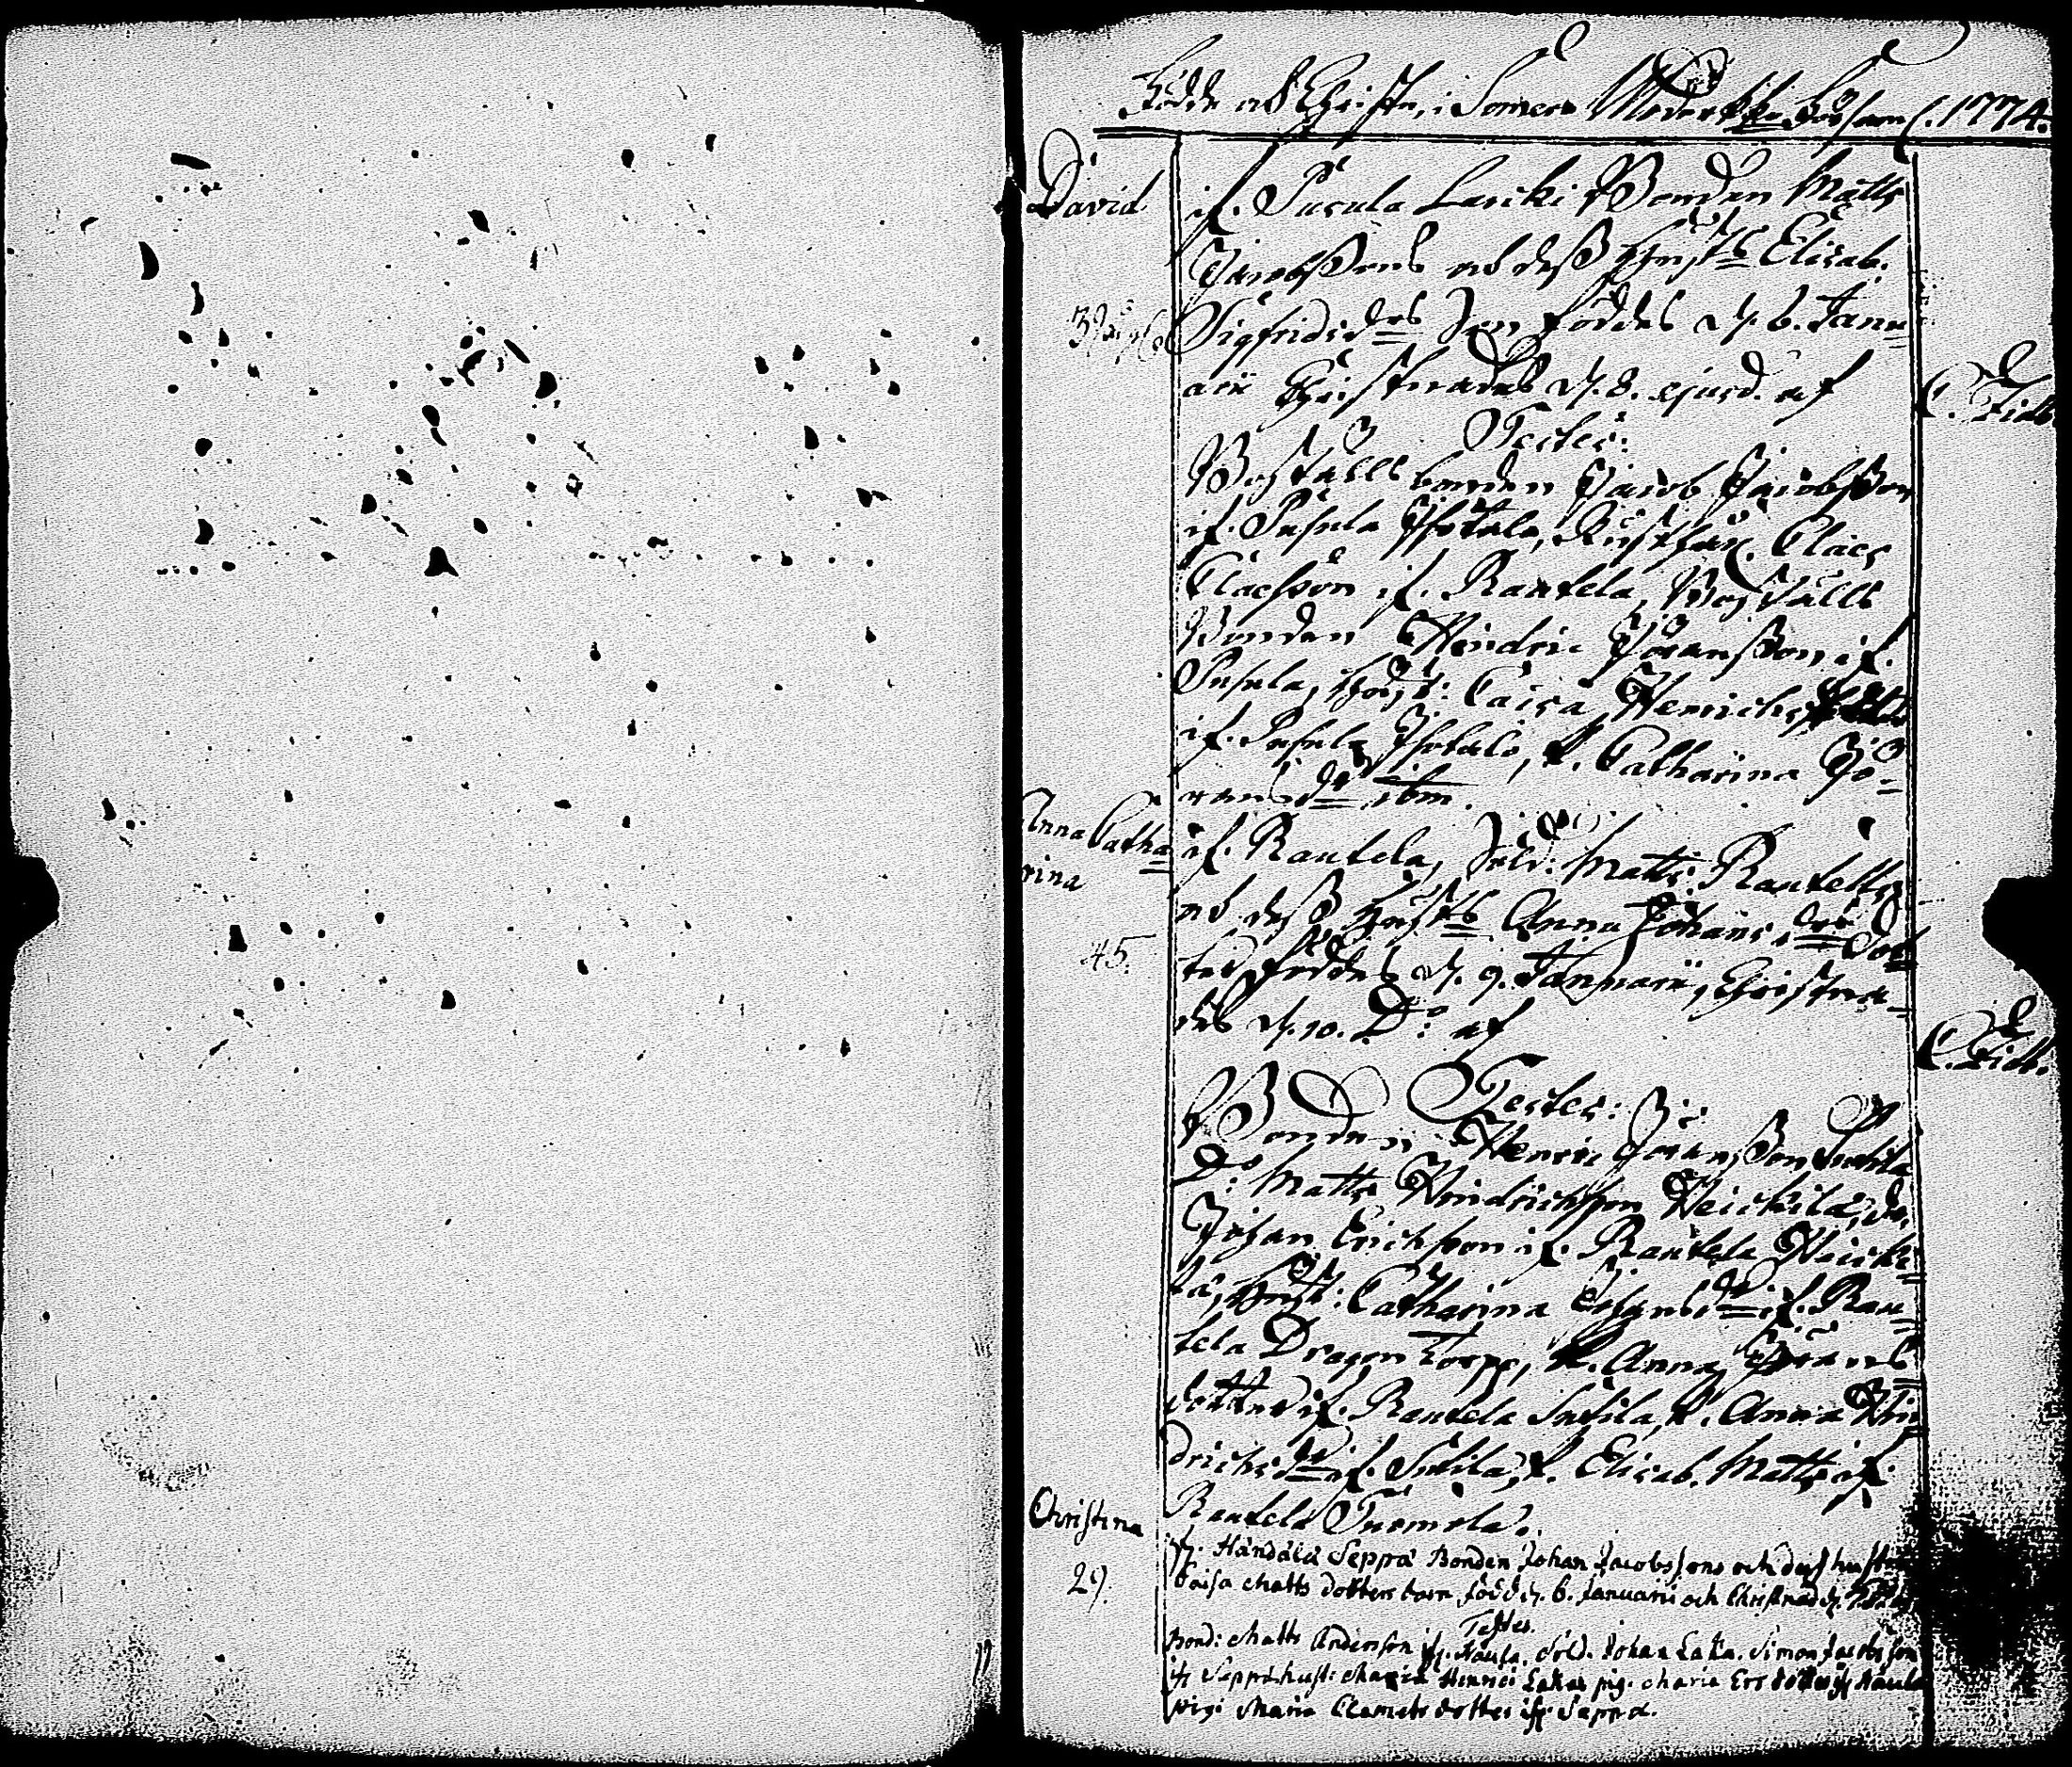 Födde och Christn. i Somero Moderkyrko Församl. 1774.
David
if. Pusula Lasicki Bonden Matts
Jacobssons och dess hustrs Elisab.
Sigfridsdrs Son föddes d. 6. Janu=
arii Christnades d. 8. ejusd. af
Testes:
Boställs bonden Jacob Jacobsson
if. Pusula Isotalo, Rusthåll. Claes
Claesson if. Rautela, Boställs
Bonden Hendric Göransson if.
Pusula, hust: Caisa Henrichs
if. Pusula Isotalo, P. Catharina Jö=
ransdr ibm.
Anna Catha=
rina
45.
if. Rautela, Sold: Matts Rautells
och dess hustrs Anna Johansdrs Dot=
ter föddes d. 9. Januarii, Christna=
des d. 10. Do af
Testes:
Bonden Henric Göransson Sutila
Do Matts Hendrichsson Heickilä, do
Johan Erichsson if. Rautela Heicki=
lä, hust: Catharina if. Rau=
tela Dragon Torpp, P. Anna Görans
dotter if. Rautela Sutila, P. Anna Hin=
drichsdr if. Sutila, P. Elisab. Matts if.
Rautela Tuomola.
Christina
29.
if. Händälä Seppä Bonden Johan Jacobssons och dess hustru
Caisa Matts dotters barn född d. 6. Januarii och Christnad d.
Testes.
Bond: Matts Andersson if. Naula. Sold. Johan Laka. Simon Jacobsson
if Seppä hust: Maria Henrics Lakas pig. Maria Ers dotter if Naula
pig: Maria Clemets dotter if. Seppä.